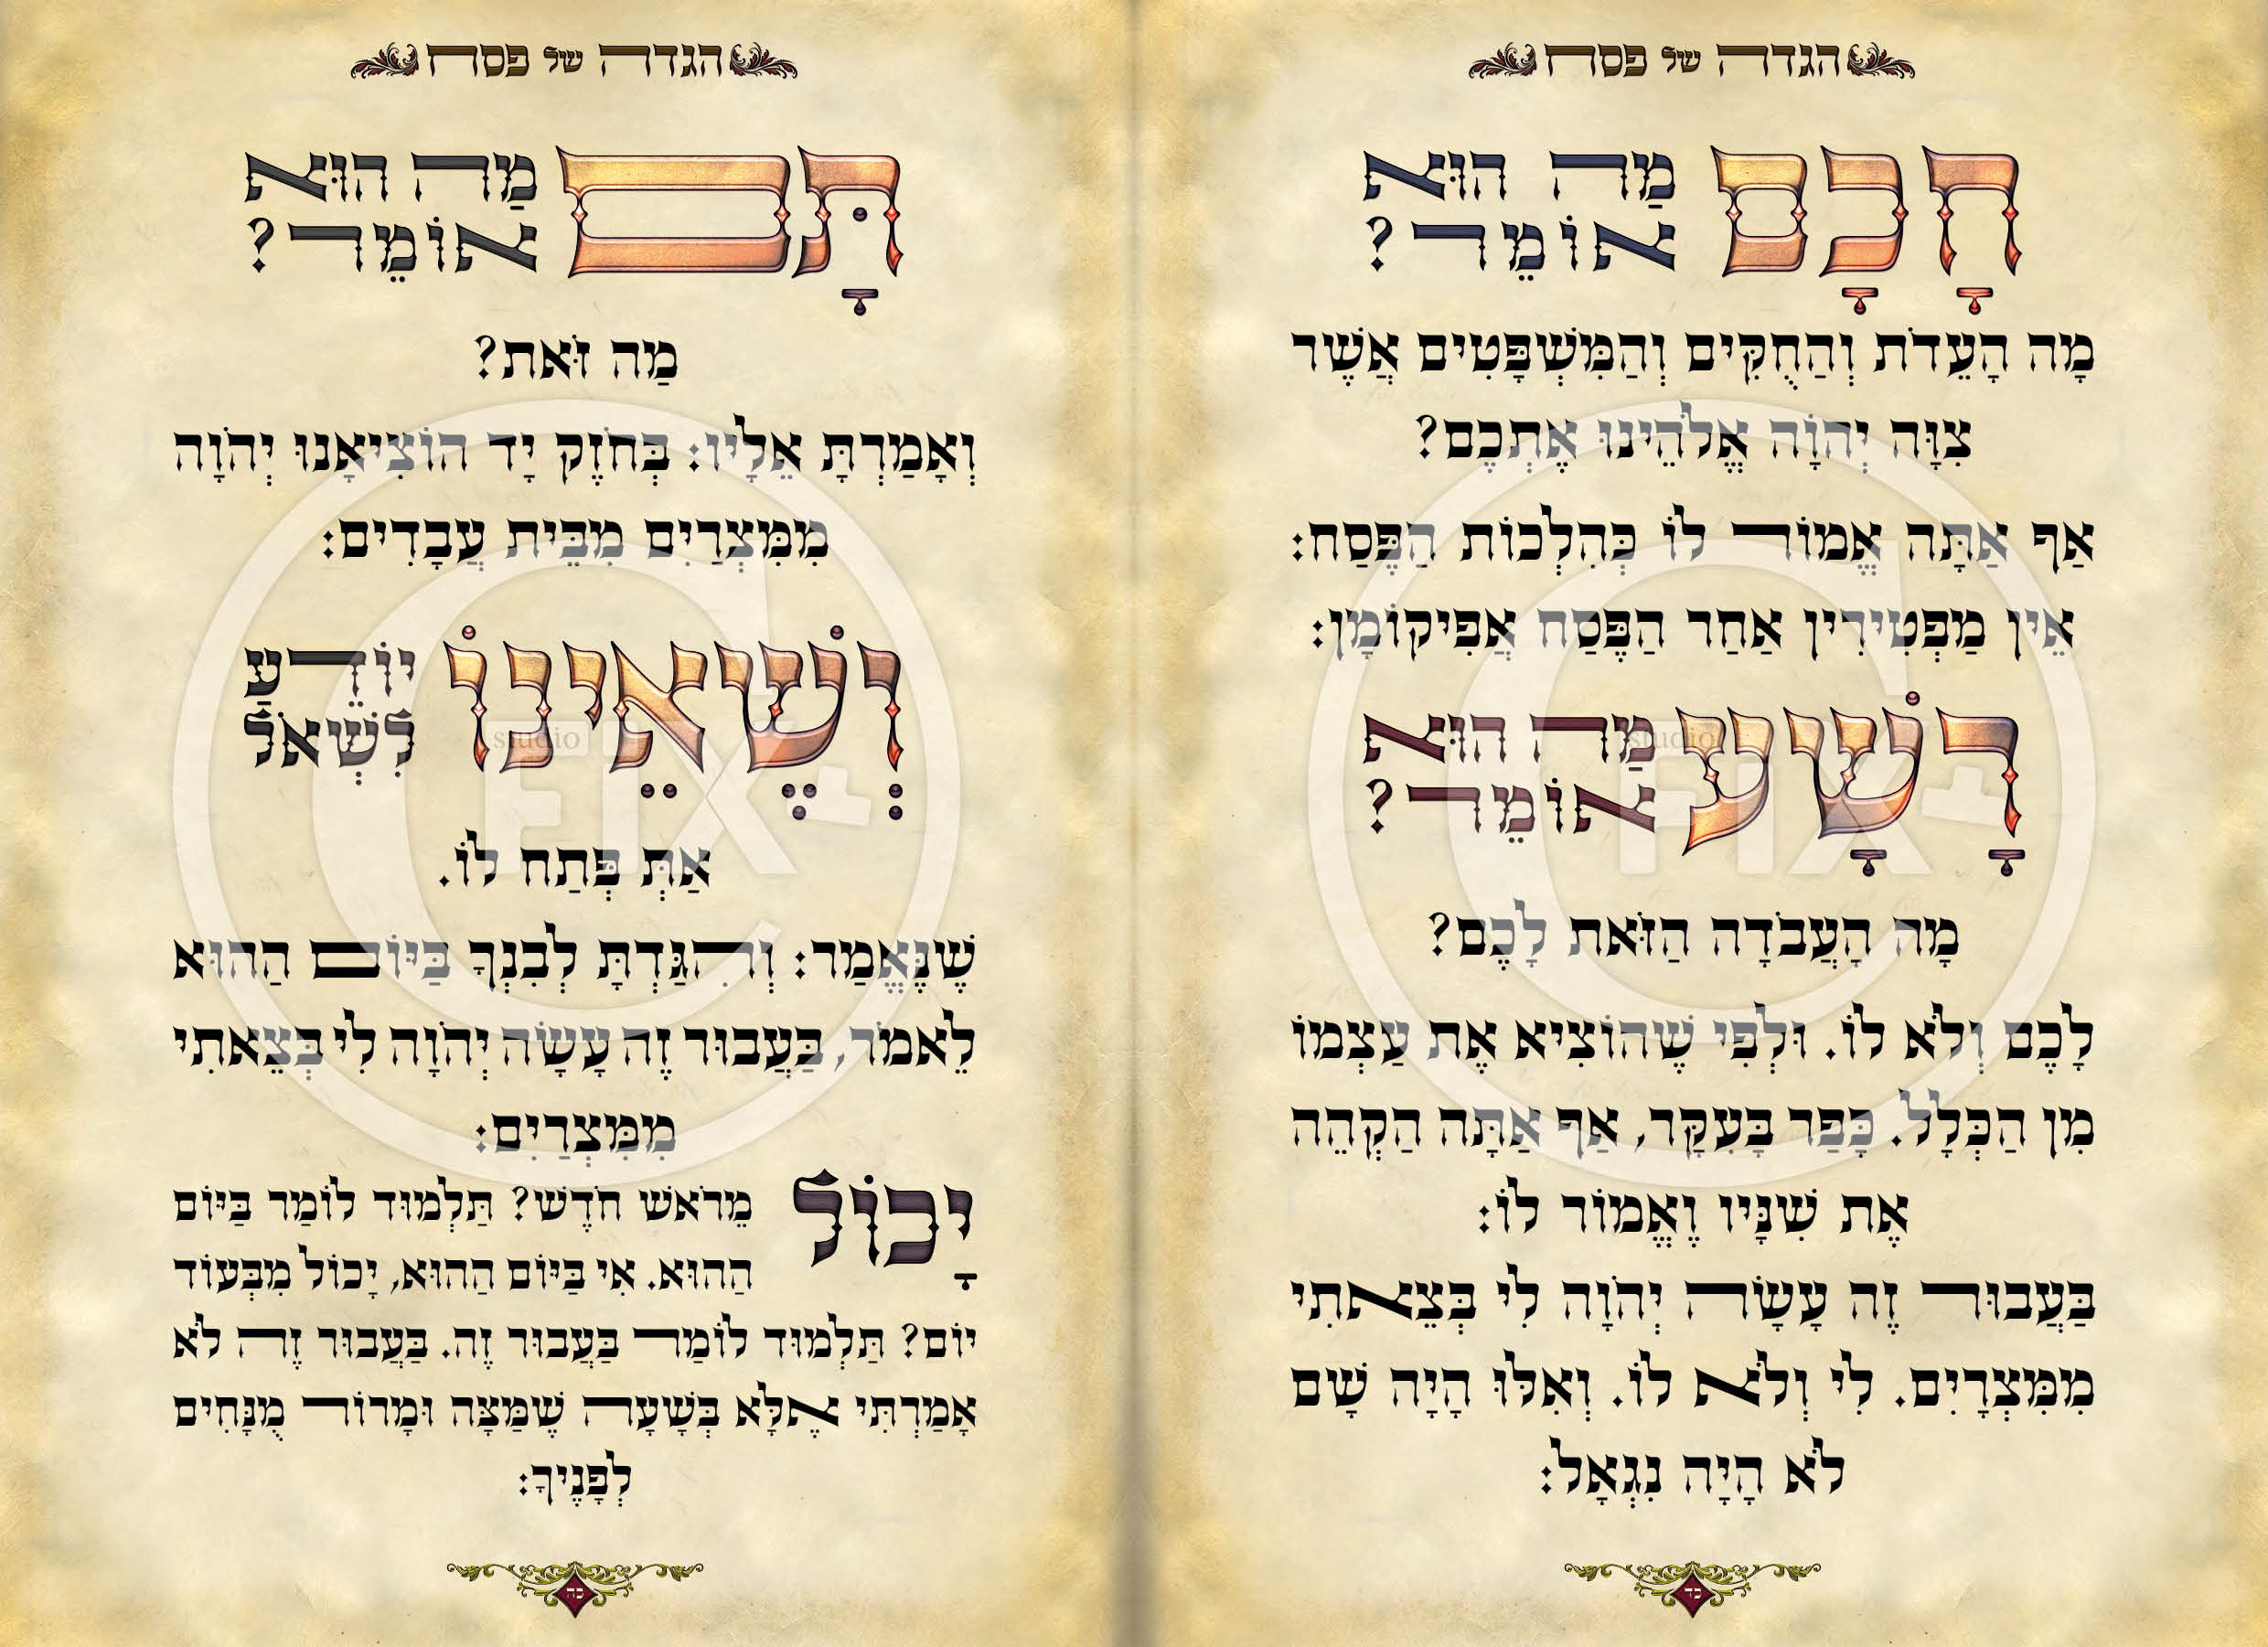 הגדה של פסח
חָכָם מַה הוּא אוֹמֵר?
מָה הָעֵדֹת וְהַחֻקִּים וְהַמִּשְׁפָּטִים אֲשֶׁר
צִוָּה יְהֹוָה אֱלֹהֵינוּ אֶתְכֶם?
אַף אַתָּה אֱמוֹר לוֹ כְּהִלְכוֹת הַפֶּסַח:
אֵין מַפְטִירִין אַחַר הַפֶּסַח אֲפִיקוֹמָן:
רָשָׁע מַה הוּא אוֹמֵר?
מָה הָעֲבֹדָה הַזֹּאת לָכֶם?
לָכֶם וְלֹא לוֹ. וּלְפִי שֶׁהוֹצִיא אֶת עַצְמוֹ
מִן הַכְּלָל. כָּפַר בָּעִקָּר, אַף אַתָּה הַקְהֵה
אֶת שִׁנָּיו וֶאֱמוֹר לוֹ:
בַּעֲבוּר זֶה עָשָׂה יְהֹוָה לִי בְּצֵאתִי
מִמִּצְרָיִם. לִי וְלֹא לוֹ. וְאִלּוּ הָיָה שָׁם
לֹא הָיָה נִגְאָל:
כד
הגדה של פסח
תָּם מַה הוּא אוֹמֵר?
מַה זֹּאת?
וְאָמַרְתָּ אֵלָיו: בְּחֹזֶק יָד הוֹצִיאָנוּ יְהֹוָה
מִמִּצְרַיִם מִבֵּית עֲבָדִים:
וְשֶׁאֵינוֹ יוֹדֵעַ לִשְׁאֹל
אַתְּ פְּתַח לוֹ.
שֶׁנֶּאֱמַר: וְהִגַּדְתָּ לְבִנְךָ בַּיּוֹם הַהוּא
לֵאמֹר, בַּעֲבוּר זֶה עָשָׂה יְהֹוָה לִי בְּצֵאתִי
מִמִּצְרַיִם:
יָכוֹל מֵרֹאשׁ חֹדֶשׁ? תַּלְמוּד לוֹמַר בַּיּוֹם
הַהוּא. אִי בַּיּוֹם הַהוּא, יָכוֹל מִבְּעוֹד
יוֹם? תַּלְמוּד לוֹמַר בַּעֲבוּר זֶה. בַּעֲבוּר זֶה לֹא
אָמַרְתִּי אֶלָּא בְּשָׁעָה שֶׁמַּצָּה וּמָרוֹר מֻנָּחִים
לְפָנֶיךָ:
כה
studio FIX+
studio FIX+